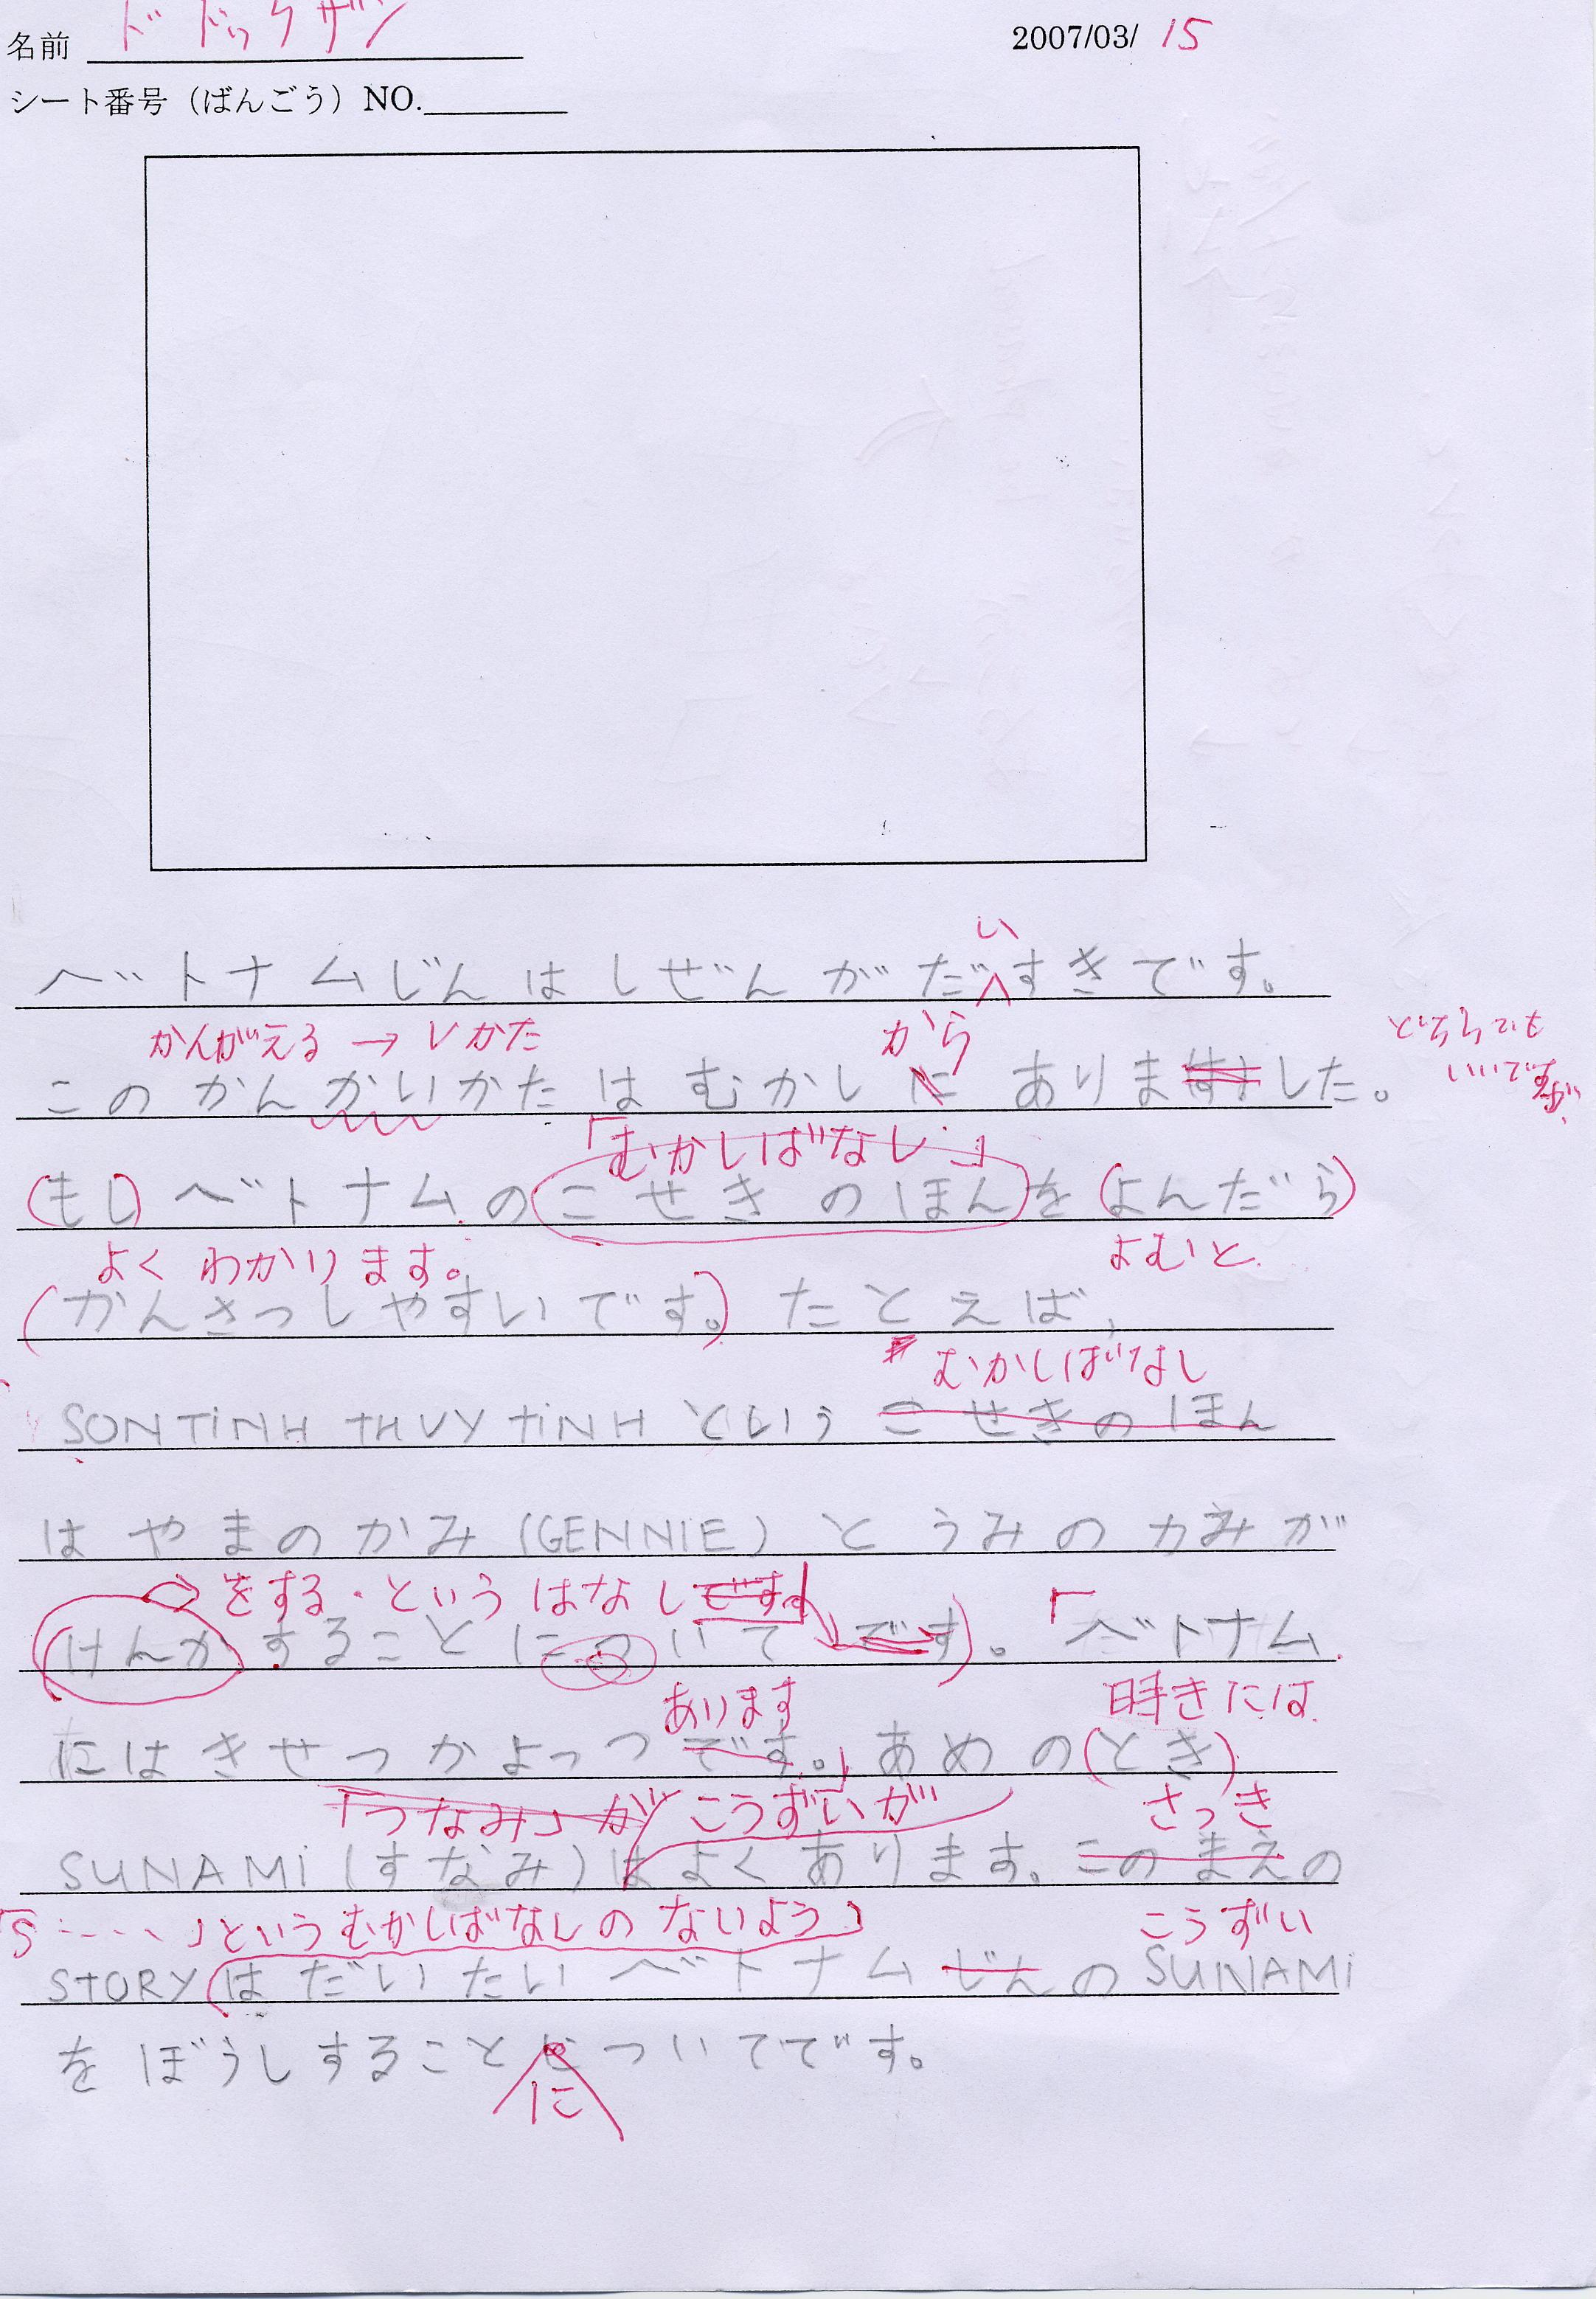 名前 ド ドゥックザン
2007/03/ 15
シート番号（ばんごう）NO.
い
ベトナムじんはしぜんがだすきです。
かんがえる → いかた
から
どちらでも
いいですが
このかんかいかたはむかしに ありますました。
「むかしばなし」
(もし) ベトナムのこせきのほんを (よんだら)
よく わかります。
よむと
(かんさつしやすいです。) たとえば,
むかしばなし
SONTiNH tHUY tiNH という こせきのほん
は やまのかみ (GENNiE) と うみのかみが
をする・という はなしです
けんかすることについてです)。「ベトナム
あります
時きには
にはきせつかよっつです。」あめの(とき)
「つなみ」が こうずいが
さっき
SUNAMi (すなみ) はよくあります。このまえの
「S・・・・、」というむかしばなしの ないよう」
こうずい
StORY はだいたいベトナムじんのSUNAMi
をぼうしすること ついてです。
に